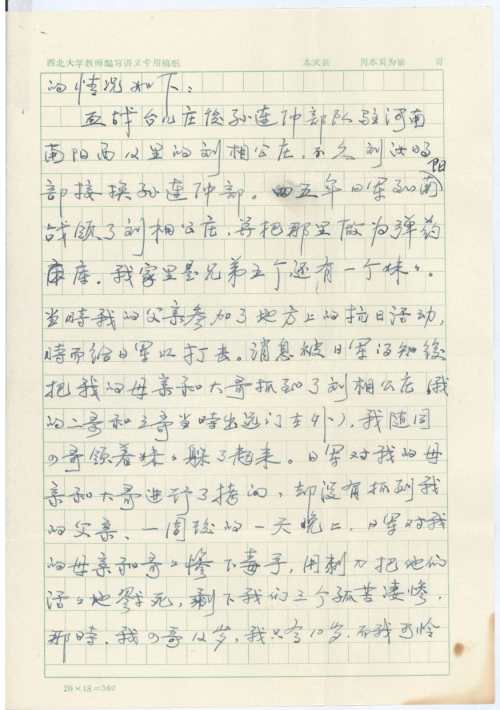 西北大学教师编写讲义专用稿纸 本文共 页本页为第 页
的情况如下：
血战台儿庄後孙连仲部队驻河南
南阳西八里的刘相公庄，不久刘汝明
部接换孙连仲部。四五年日军到南阳
战领了刘相公庄，并把那里做为弹药
库。我家里是兄弟五个，还有一个妹々。
当時我的父亲参加了地方上的抗日活动，
時而给日军以打击。消息被日军得知後
把我的母亲和大哥抓到了刘相公庄（我
的二哥和三哥当時出远门在外），我随同
哥领着妹々躲了起来。日军对我的母
亲和大哥进行了拷问，却没有抓到我
的父亲，一周後的一天晚上，日军对我
的母亲和哥々惨下毒手，用刺刀把他们
活々地戳死，剩下我们三个孤苦凄惨，
那時，我哥12岁，我只有10岁，在我可怜
20×18=360